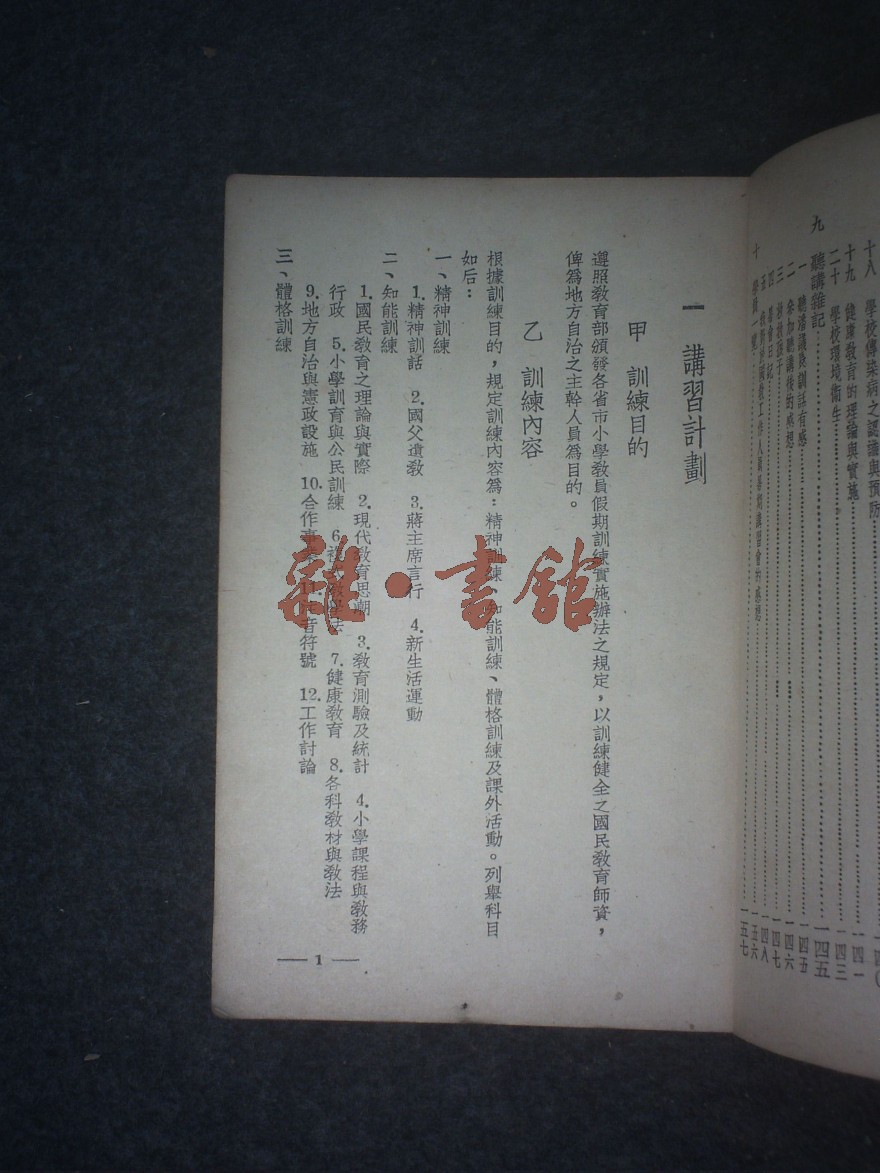 十八　學校傳染病之認識與預防
十九　健康教育的理論與實施　一四一
二十　學校環境衛生　一四三
九　聽講雜記　一四五
一　聽潘議長訓話有感　一四五
二　參加聽講後的感想　一四六
三　一四七
四　一四八
五　一五六
十　一五七
一　講習計劃
甲　訓練目的
遵照教育部頒發各省市小學教員假期訓練實施辦法之規定，以訓練健全之國民教育師資，
俾爲地方自治之主幹人員爲目的。
乙　訓練內容
根據訓練目的，規定訓練內容爲：精神訓練、知能訓練、體格訓練及課外活動。列舉科目
如后：
一、精神訓練
1.精神訓話　2.國父遺教　3.蔣主席言行　4.新生活運動
二、知能訓練
1.國民教育之理論與實際　2.現代教育思潮　3.教育測驗及統計　4.小學課程與教務
行政　5.小學訓育與公民訓練　6.教學法　7.健康教育　8.各科教材與教法
9.地方自治與憲政設施　10.合作事業　11.注音符號　12.工作討論
三、體格訓練
— 1 —
雜·書館